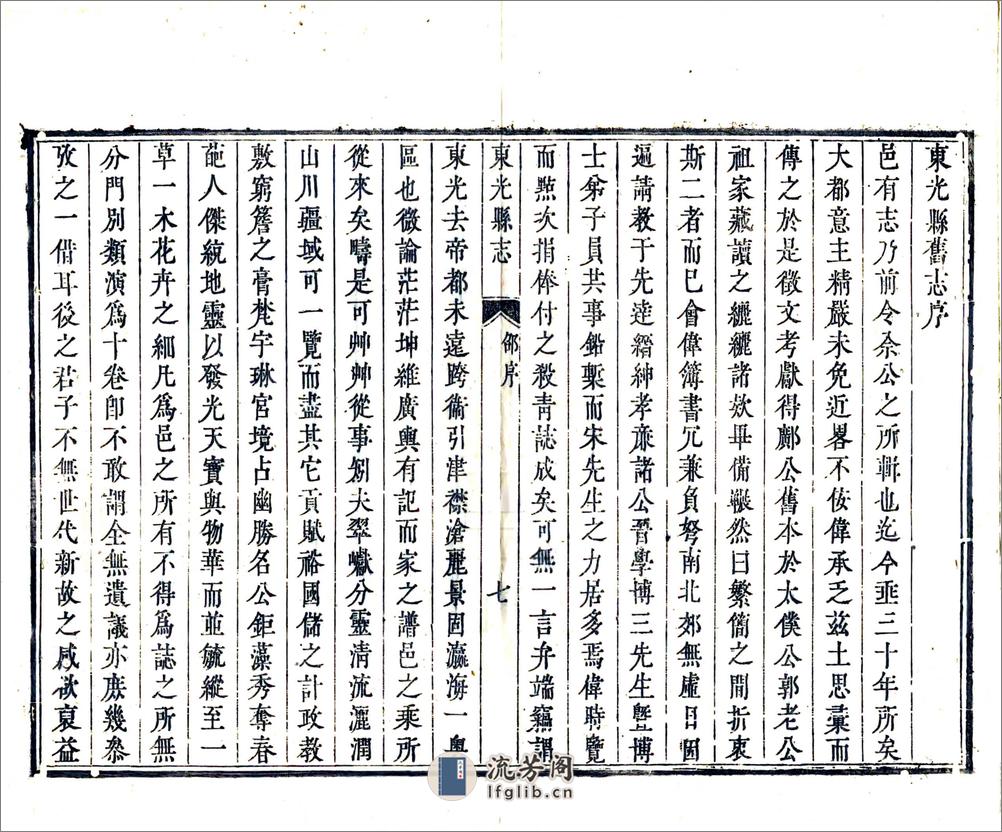 東光縣舊志序
邑有志乃前令余公之所輯也迄今垂三十年所矣
大都意主精嚴未免近畧不佞偉承乏茲土思彙而
傳之於是徵文考獻得鄺公舊本於太僕公郭老公
祖家藏讀之纚纚諸欵畢備囅然曰繁簡之間折衷
斯二者而已會偉簿書冗兼負弩南北郊無虛日因
遍請教于先達縉紳孝亷諸公晉學博三先生曁博
士弟子員共事鉛槧而宋先生之力居多焉偉時覽
而㸃次捐俸付之殺青誌成矣可無一言弁端竊謂
東光縣志
邰序
七
東光去帝都未遠跨衞引津襟滄麗景固瀛海一奥
區也微論茫茫坤維廣輿有記而家之譜邑之乘所
從來矣疇是可艸艸從事剏夫翠巘分靈清流灑潤
山川疆域可一覽而盡其它貢賦裕國儲之計政教
敷窮簷之膏梵宇琳宮境占幽勝名公鉅藻秀奪春
葩人傑統地靈以發光天寶與物華而並毓縱至一
草一木花卉之細凡爲邑之所有不得爲誌之所無
分門別類演爲十卷卽不敢謂全無遺議亦庶幾叅
攷之一借耳後之君子不無世代新故之感欲裒益
流芳阁
lfglib.cn